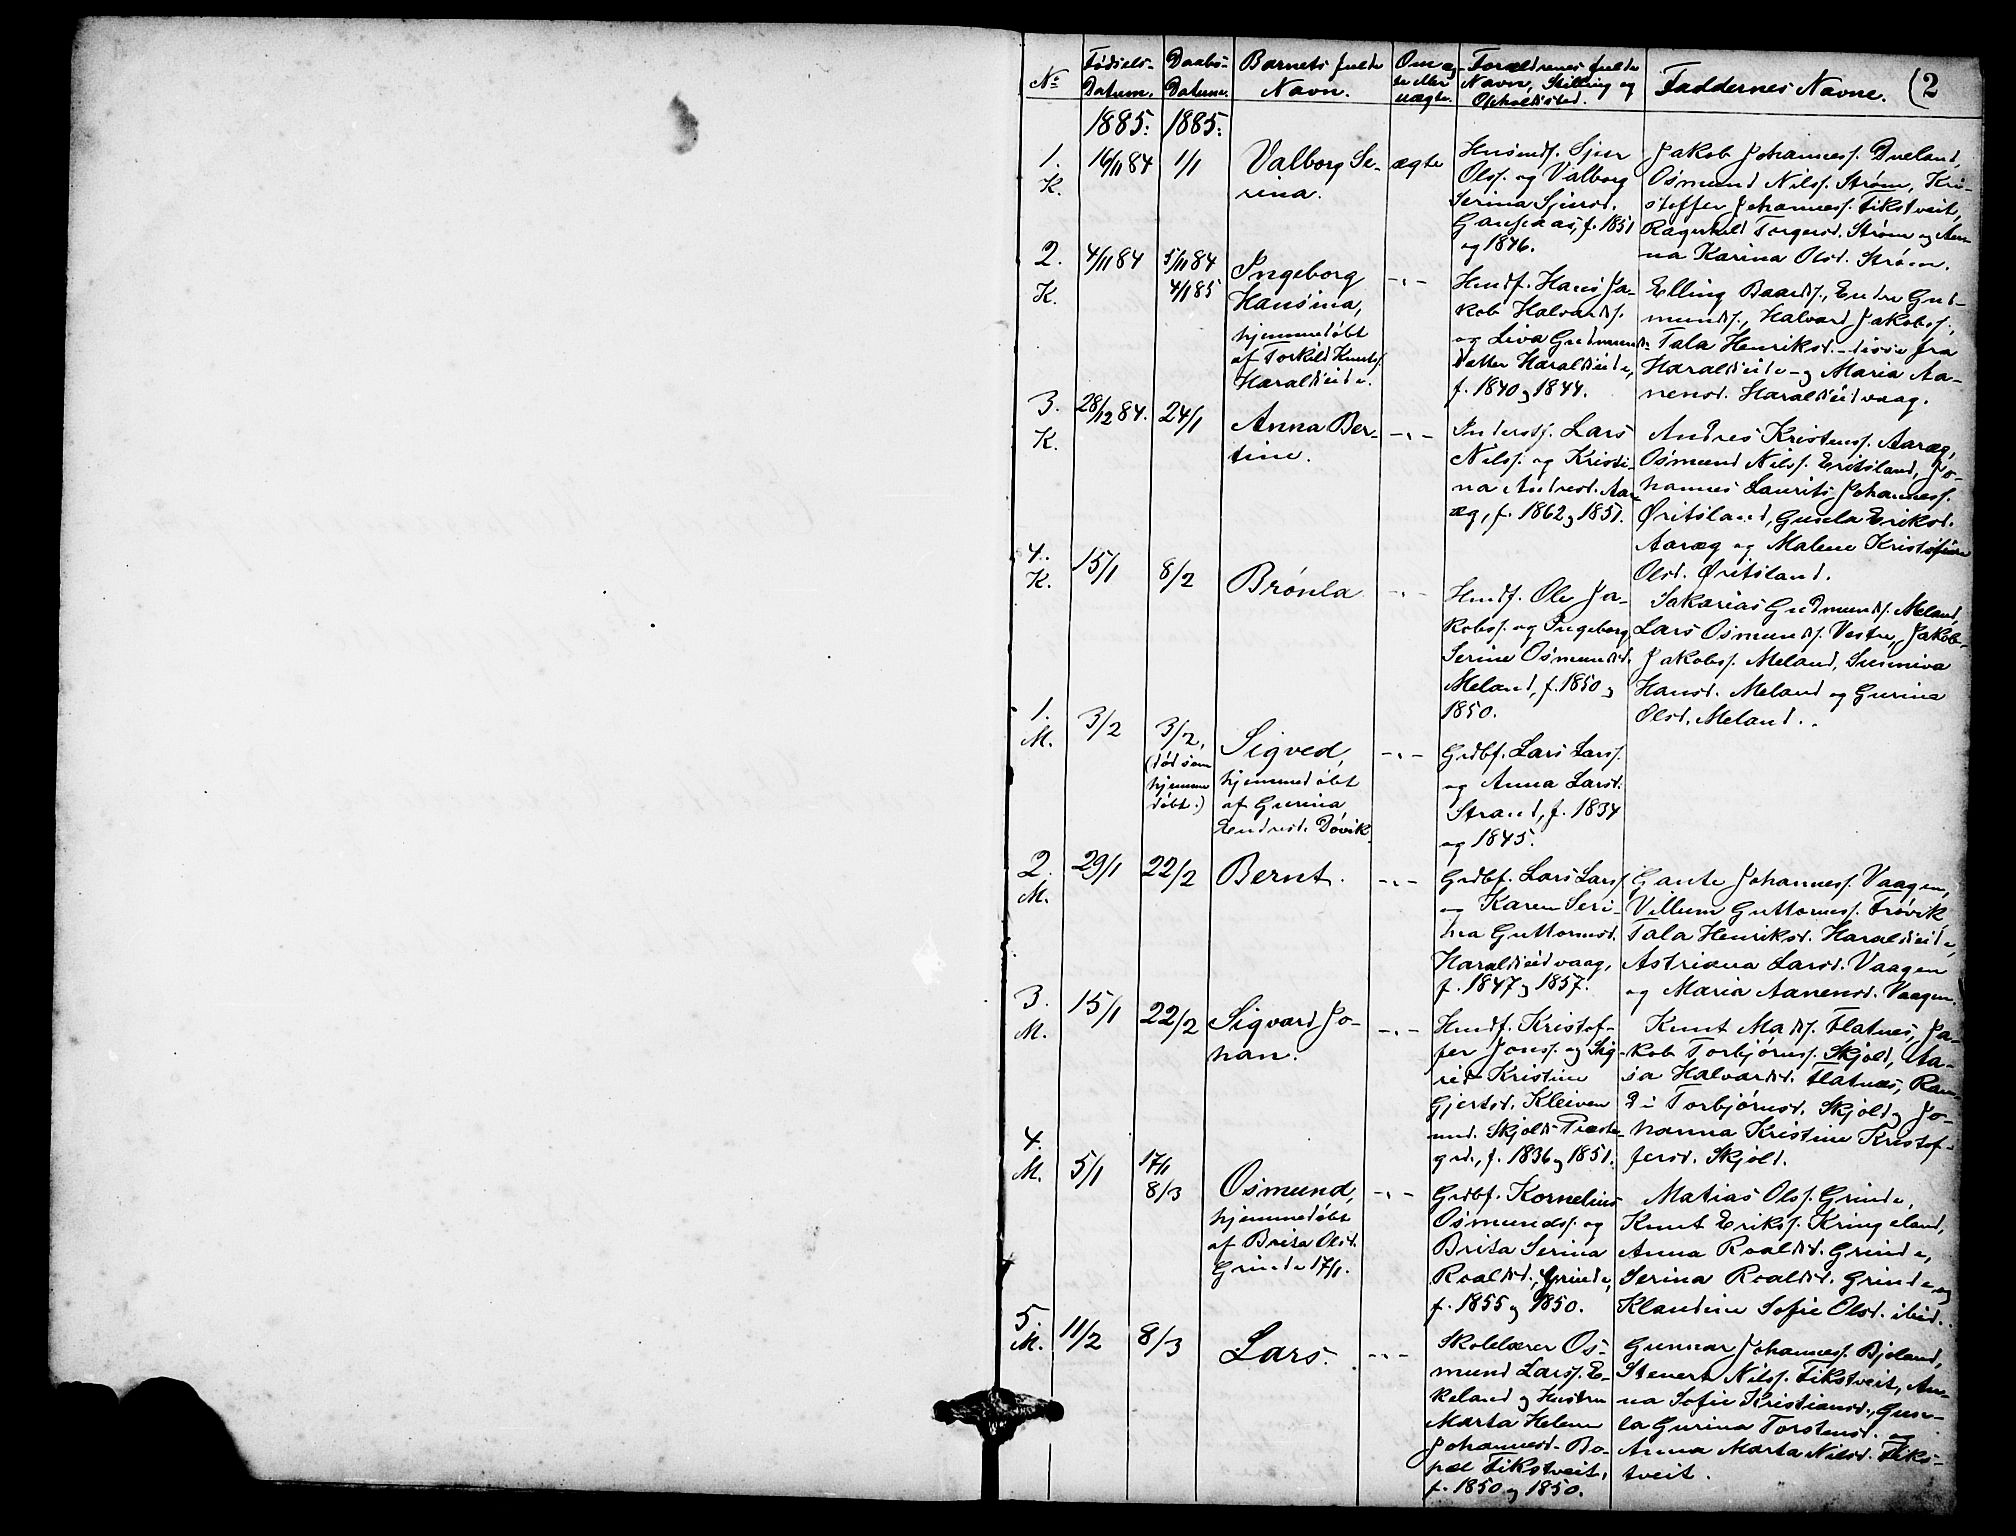 No Fødsels- Datum. Daabs- Datum. Barnets fulde Navn. Om æg- te eller uægte. Forældrenes fulde Navn, Stilling og Opholdssted. Faddernes Navne. (2
1885. 1885.
1. K. 16/11 84 1/1
Valborg Se-
rina.
ægte
Husmdf. Sjur
Olss. og Valborg
Serina Sjursd.
f. 1851
og 1846.
Jakob Johanness. Dueland,
Osmund Nilss. Strøm, Kri-
stoffer Johanness. Fikstveit,
Ragnhild Torgersd. Strøm og An-
na Karina Olsd. Strøm.
2. K. 4/11 84 5/11 84
4/1 85
Ingeborg
Hansina,
hjemmedøbt
af Torkild Knuts.
Haraldseide.
-"-
Hmdf. Hans Ja-
kob Halvards.
og Liva Gudmunds-
datter Haraldseide,
f. 1840 og 1844.
Elling Baards., Endre Gud-
munds., Halvard Jakobs.,
Tala Henriksd. - disse fra
Haraldseide - og Maria Aa-
nensd. Haraldseidvaag.
3. K. 28/12 84. 24/1
Anna Ber-
tine.
-"-
Inderstf. Lars
Nilss. og Kristi-
na Andresd. Aar-
æg, f. 1862 og 1851.
Andres Kristens. Aaræg,
Osmund Nilss. Eritsland, Jo-
hannes Laurits Johanness.
Øritsland, Gunla Eriksd.
Aaræg og Malene Kristofine
Olsd. Øritsland.
4. K. 15/1 8/2
Brønla
-"-
Hmdf. Ole Ja-
kobss. og Ingeborg
Serine Osmundsd.
Meland, f. 1850 og
1850.
Sakarias Gudmunds. Meland,
Lars Osmunds. Vestre, Jakob
Jakobs. Meland, Sunniva
Hansd. Meland og Gurina
Olsd. Meland.
1. M. 3/2 3/2,
(død som
hjemme
døbt.)
Sigved,
hjemmedøbt
af Gurina
Endresd. Døvik.
-"-
Grdbf. Lars Larss.
og Anna Larsd.
Strand, f. 1834
og 1845.
2. M. 29/1 22/2
Bernt.
-"-
Grdbf. Lars Larss.
og Karen Seri-
na Guttormsd.
Haraldseidvaag,
f. 1847 og 1857.
Gaute Johanness. Vaagen,
Villum Guttormss. Frøvik
Tala Henriksd. Haraldseide,
Astriana Larsd. Vaagen
og Maria Aanensd. Vaagen.
3. M. 15/1 22/2
Sigvard Jo-
han.
-"-
Hmdf. Kristof-
fer Jonss. og Sig-
rid Kristine
Gjertsd. Kleiven
und. Skjolds Præste-
grd., f. 1836 og 1851.
Knut Mads. Flatnes, Ja-
kob Torbjørnss. Skjold, Aa-
sa Halvardsd. Flatnæs, Ran-
di Torbjørnsd. Skjold og Jo-
hanna Kristine Kristof-
fersd. Skjold.
4. M. 5/1 17/1
8/3
Osmund,
hjemmedøbt
af Brita Olsd.
Grinde 17/1.
-"-
Grdbf. Kornelius
Osmundss. og
Brita Serina
Roaldsd. Grinde,
f. 1855 og 1850.
Matias Olss. Grinde,
Knut Erikss. Kringeland,
Anna Roaldsd. Grinde,
Serina Roaldsd. Grinde og
Klaudine Sofie Olsd. ibid.
5. M. 11/2 8/3
Lars.
-"-
Skolelærer Os-
mund Larss. E-
keland og Hustru
Marta Helene
Johannesd. Bo-
pæl Fikstveit,
f. 1850 og 1850.
Gunnar Johanness. Bjoland,
Stenert Nilss. Fikstveit, An-
na Sofie Kristiansd., Gun-
la Gurina Torstensd. og
Anna Marta Nilsd. Fiks-
tveit.